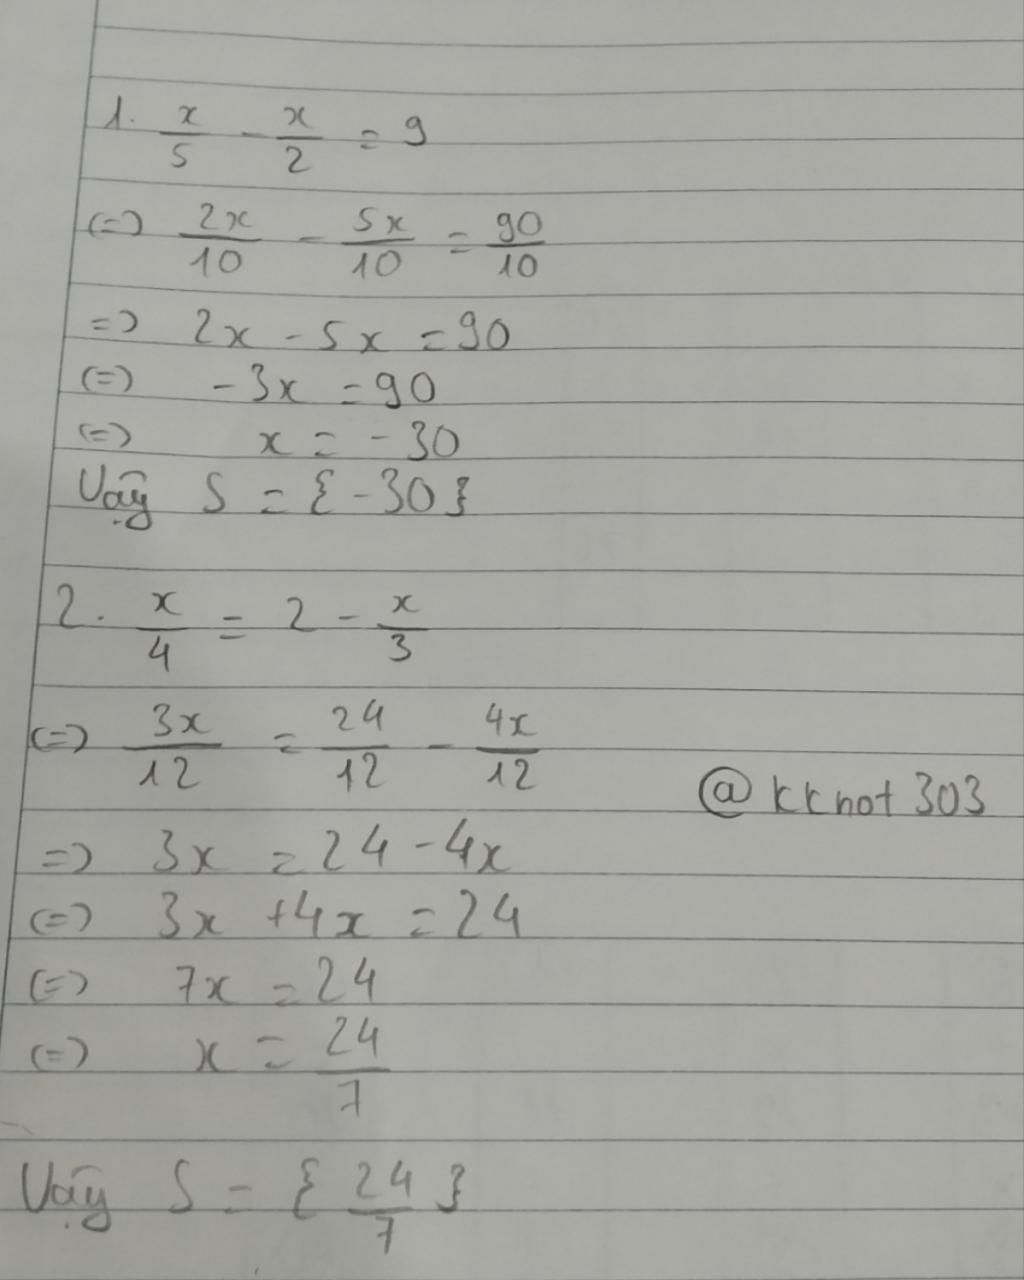 1. x/5 - x/2 = 9
(=) 2x/10 - 5x/10 = 90/10
=) 2x - 5x = 90
(=) -3x = 90
(=) x = -30
Vậy S = {-30}
2. x/4 = 2 - x/3
(=) 3x/12 = 24/12 - 4x/12
@kknot303
=) 3x = 24 - 4x
(=) 3x + 4x = 24
(=) 7x = 24
(=) x = 24/7
Vậy S = {24/7}